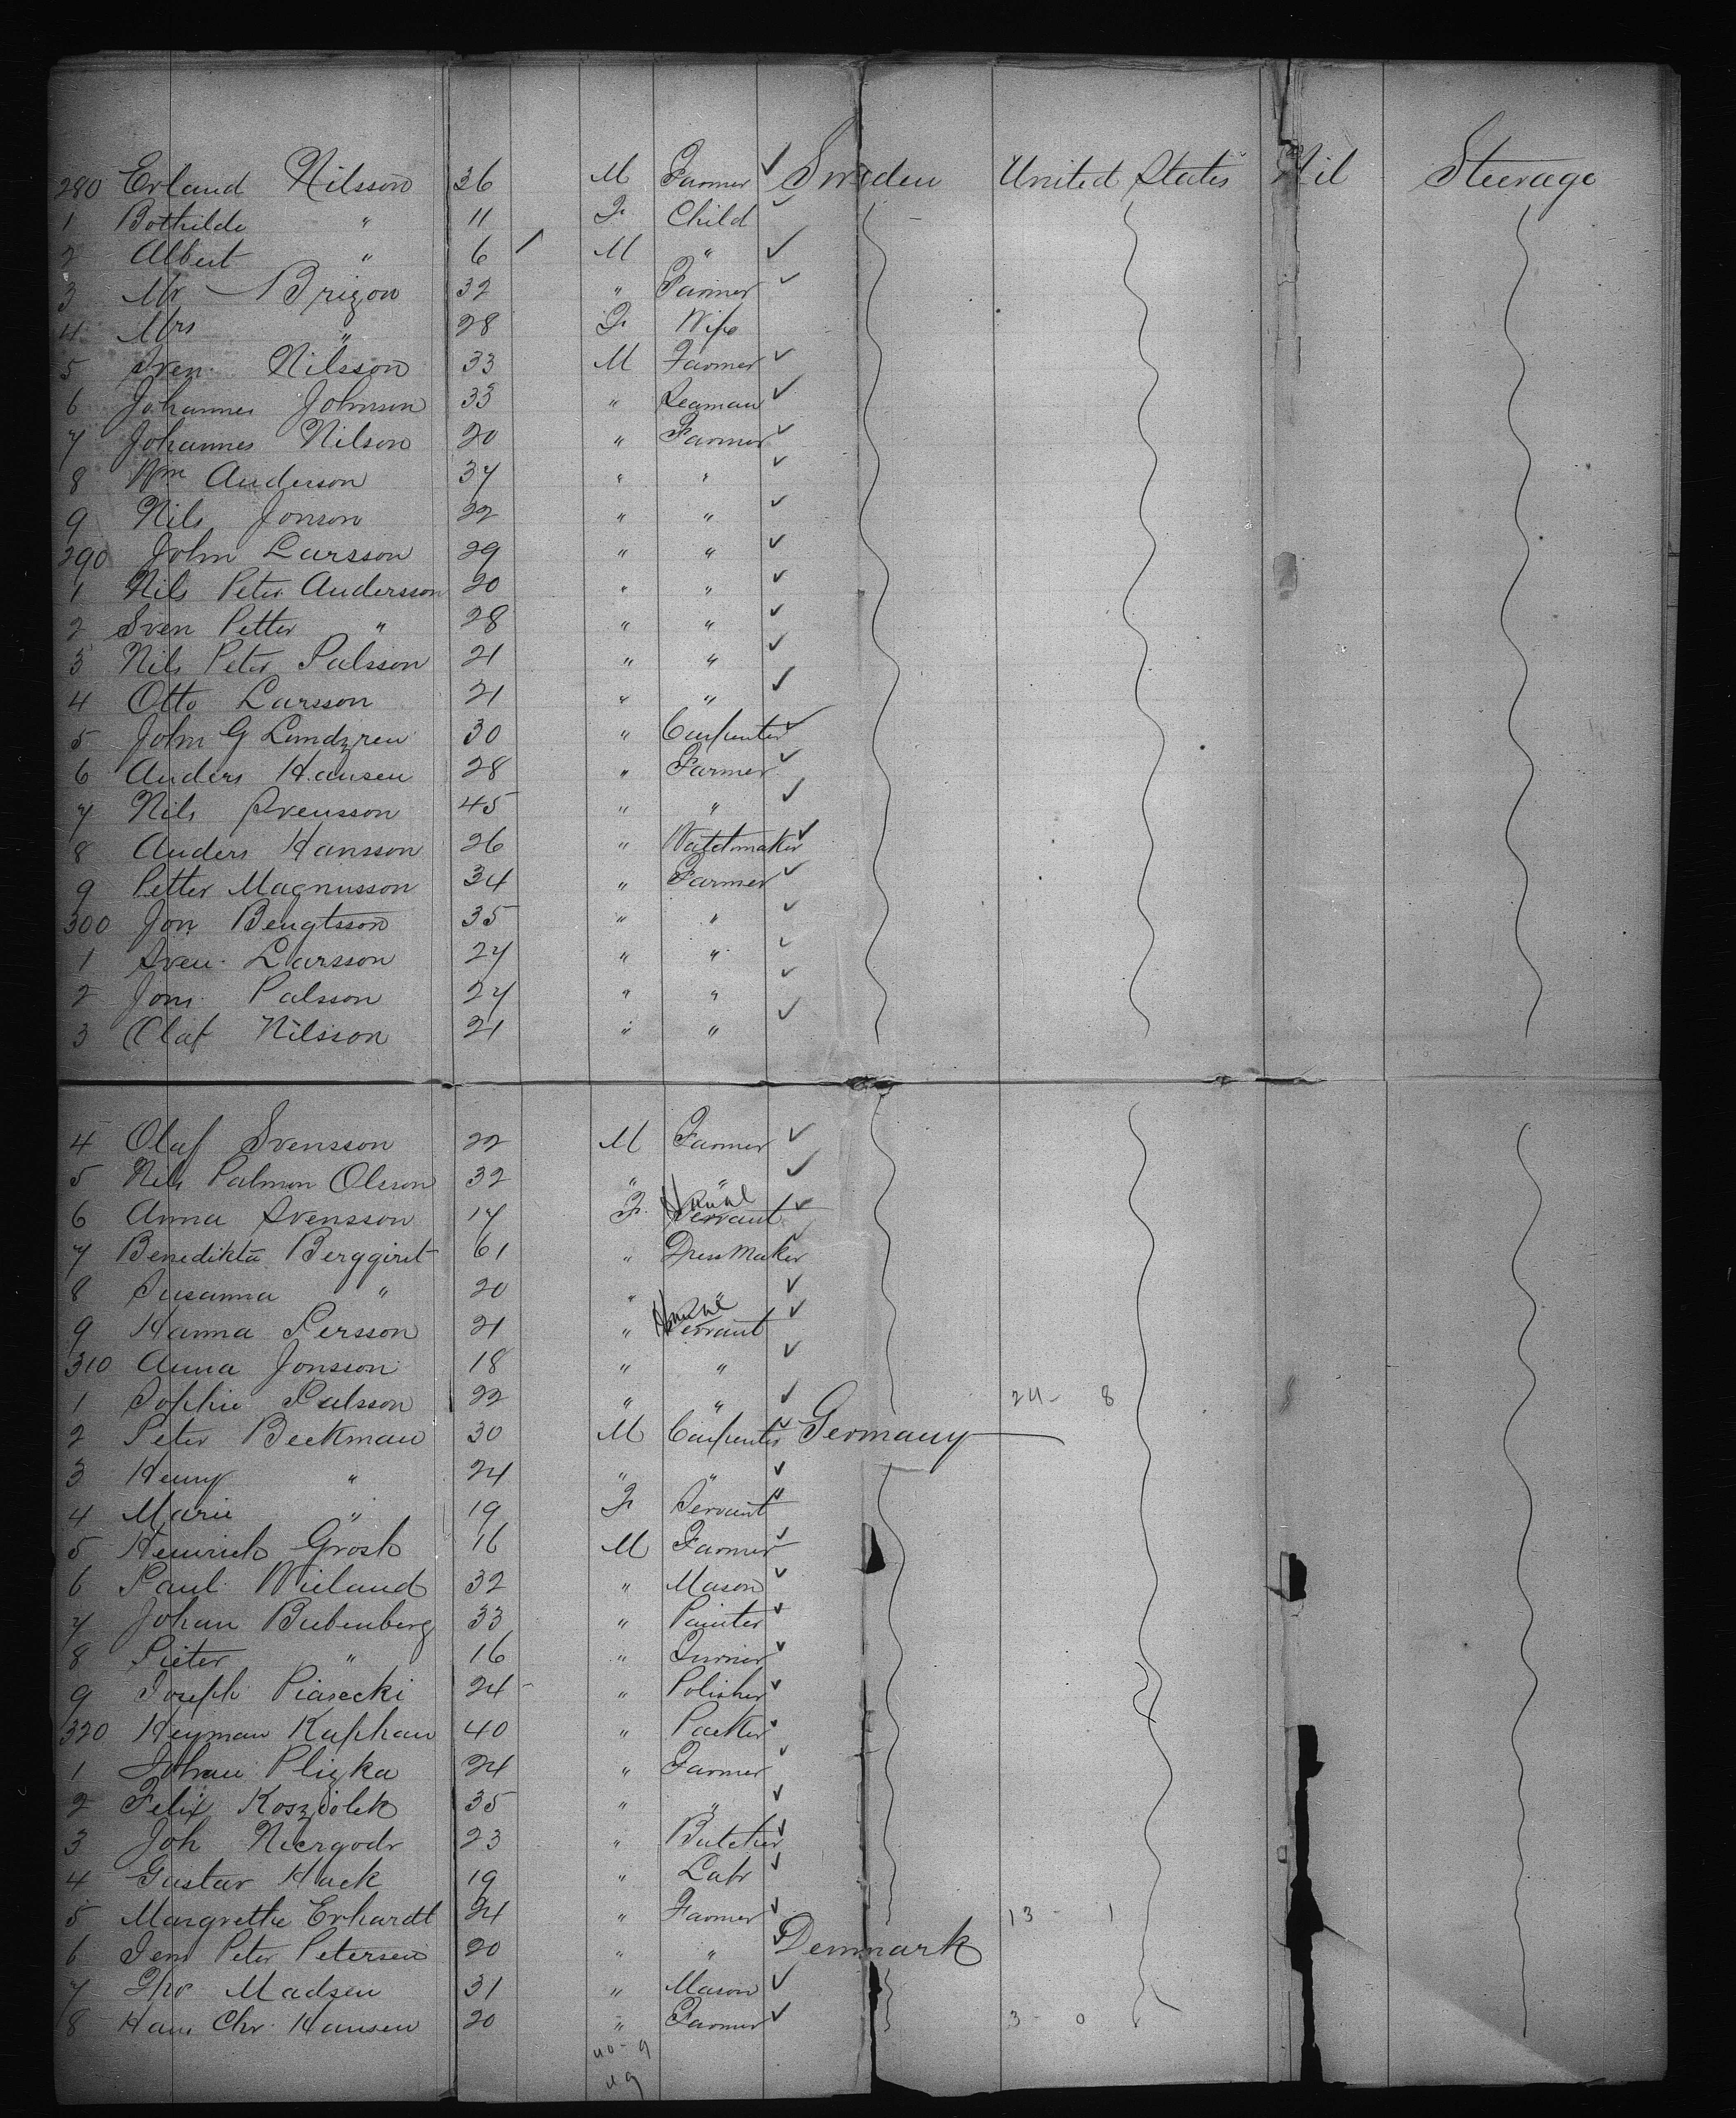 280 Erland Nilsson 36 M Farmer ✓ Sweden United States Nil Steerage
1 Bothilde " 11 F. Child ✓
2 Albert " 6 / M " ✓
3 Mr Brizon 32 " Farmer ✓
4 Mrs " 28 F. Wife
5 Sven Nilsson 33 M Farmer ✓
6 Johannes Johnson 33 " Seaman ✓
7 Johannes Nilson 20 " Farmer ✓
8 Wm Anderson 37 " " ✓
9 Nils Jonson 22 " " ✓
290 John Larsson 29 " " ✓
1 Nils Peter Andersson 20 " " ✓
2 Sven Petter " 28 " " ✓
3 Nils Peter Palsson 21 " " ✓
4 Otto Larsson 21 " " ✓
5 John G Lundgren 30 " Carpenter ✓
6 Anders Hansen 28 " Farmer ✓
7 Nils Svensson 45 " " ✓
8 Anders Hansson 26 " Watchmaker ✓
9 Petter Magnusson 34 " Farmer ✓
300 Jon Bengtsson 35 " " ✓
1 Sven Larsson 27 " " ✓
2 Jons Palsson 27 " " ✓
3 Olaf Nilsson 21 " " ✓
4 Olaf Svensson 22 M Farmer ✓
5 Nils Palmon Olsson 32 " " ✓
6 Anna Svensson 17 F. Servant ✓
7 Benedikta Berggirt 61 " Dress Maker
8 Susanna " 20 " " ✓
9 Hanna Persson 21 " Servant ✓
310 Anna Jonsson 18 " " ✓
1 Sophie Palsson 22 " " ✓ 24 - 8
2 Peter Beekman 30 M Carpenter ✓ Germany
3 Henry " 24 " " ✓
4 Marie " 19 F Servant ✓
5 Heinrich Grosh 16 M Farmer ✓
6 Paul Wieland 32 " Mason ✓
7 Johan Bubenberg 33 " Painter ✓
8 Pieter " 16 " Turner ✓
9 Joseph Piasecki 24 " Polisher ✓
320 Heyman Kaphan 40 " Packer ✓
1 Johan Plizka 24 " Farmer ✓
2 Felix Koszіolek 35 " " ✓
3 Joh Niergodr 23 " Butcher ✓
4 Gustav Hack 19 " Labr ✓
5 Margrethe Erhardt 24 " Farmer ✓ 13 - 1
6 Jens Peter Petersen 20 " " ✓ Denmark
7 Madsen 31 " Mason ✓
8 Hans Chr Hansen 20 " Farmer ✓ 3 - 0
40 - 9
49